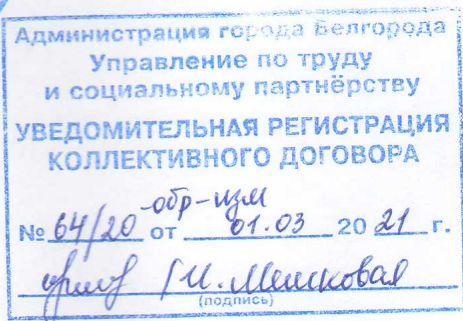 Администрация города Белгорода
Управление по труду
и социальному партнёрству
УВЕДОМИТЕЛЬНАЯ РЕГИСТРАЦИЯ
КОЛЛЕКТИВНОГО ДОГОВОРА
-обр-изм
№ 64/20 от 01.03 20 21 г.
И. Мешковая
(подпись)